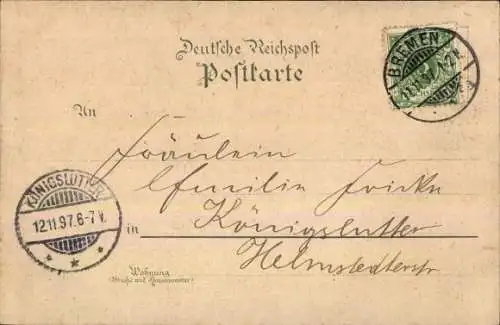 Deutsche Reichspost
Postkarte
BREMEN
11.11.97
An
Fräulein
Emilie Fricke
KÖNIGSLUTTER
12.11.97.6-7V.
in Königslutter
Helmstedterstr
Wohnung
(Straße und Hausnummer)